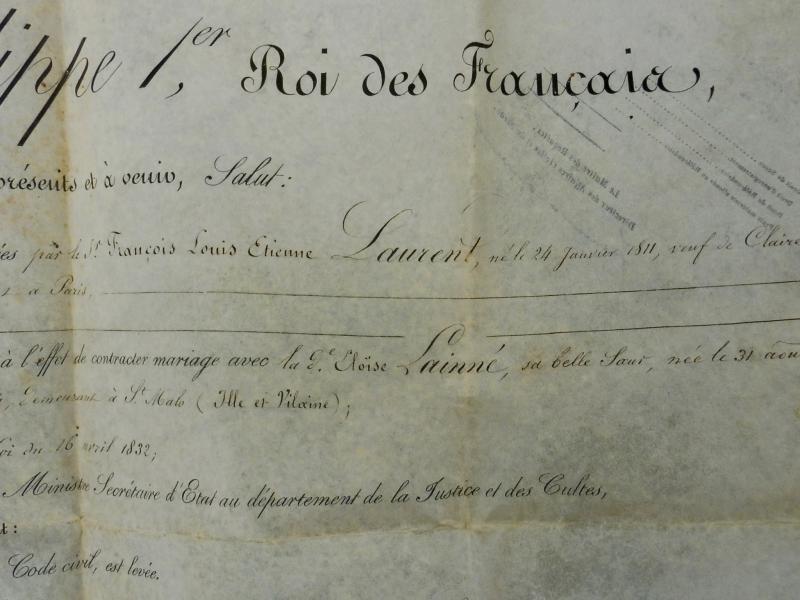 ippe 1er, Roi des Français,
présents et à venir, Salut:
ées par le Sr. François Louis Etienne Laurent, né le 24 Janvier 1811, veuf de Claire
t à Paris,
à l'effet de contracter mariage avec la De. Eloïse Lainné, sa belle Sœur, née le 31 août
demeurant à St. Malo (Ille et Vilaine);
oi du 16 avril 1832;
Ministre Secrétaire d'Etat au département de la Justice et des Cultes,
t:
Code civil, est levée.